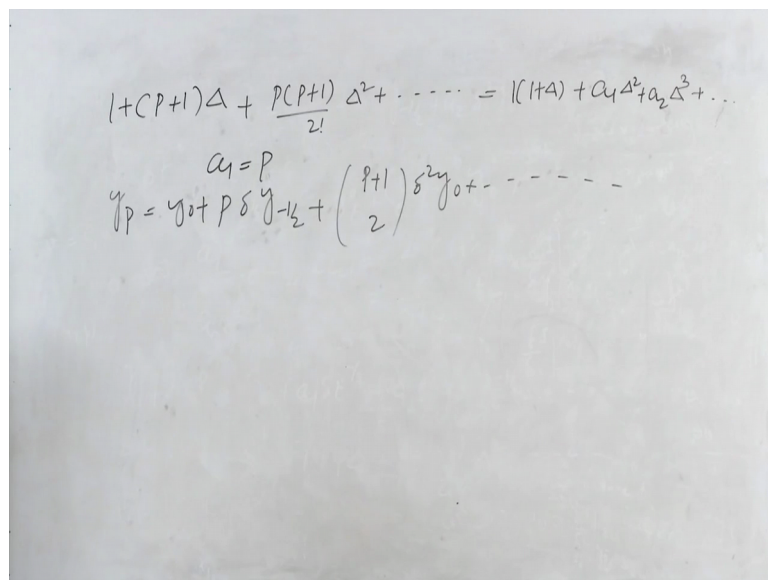 1+(P+1)Δ + P(P+1)/2! Δ²+ ------ = 1(1+Δ) + a₁Δ²+a₂Δ³+...
a₁ = P
yₚ = y₀+ P δ y₋₁/₂ + (P+1 2) δ²y₀+- - - - - - -